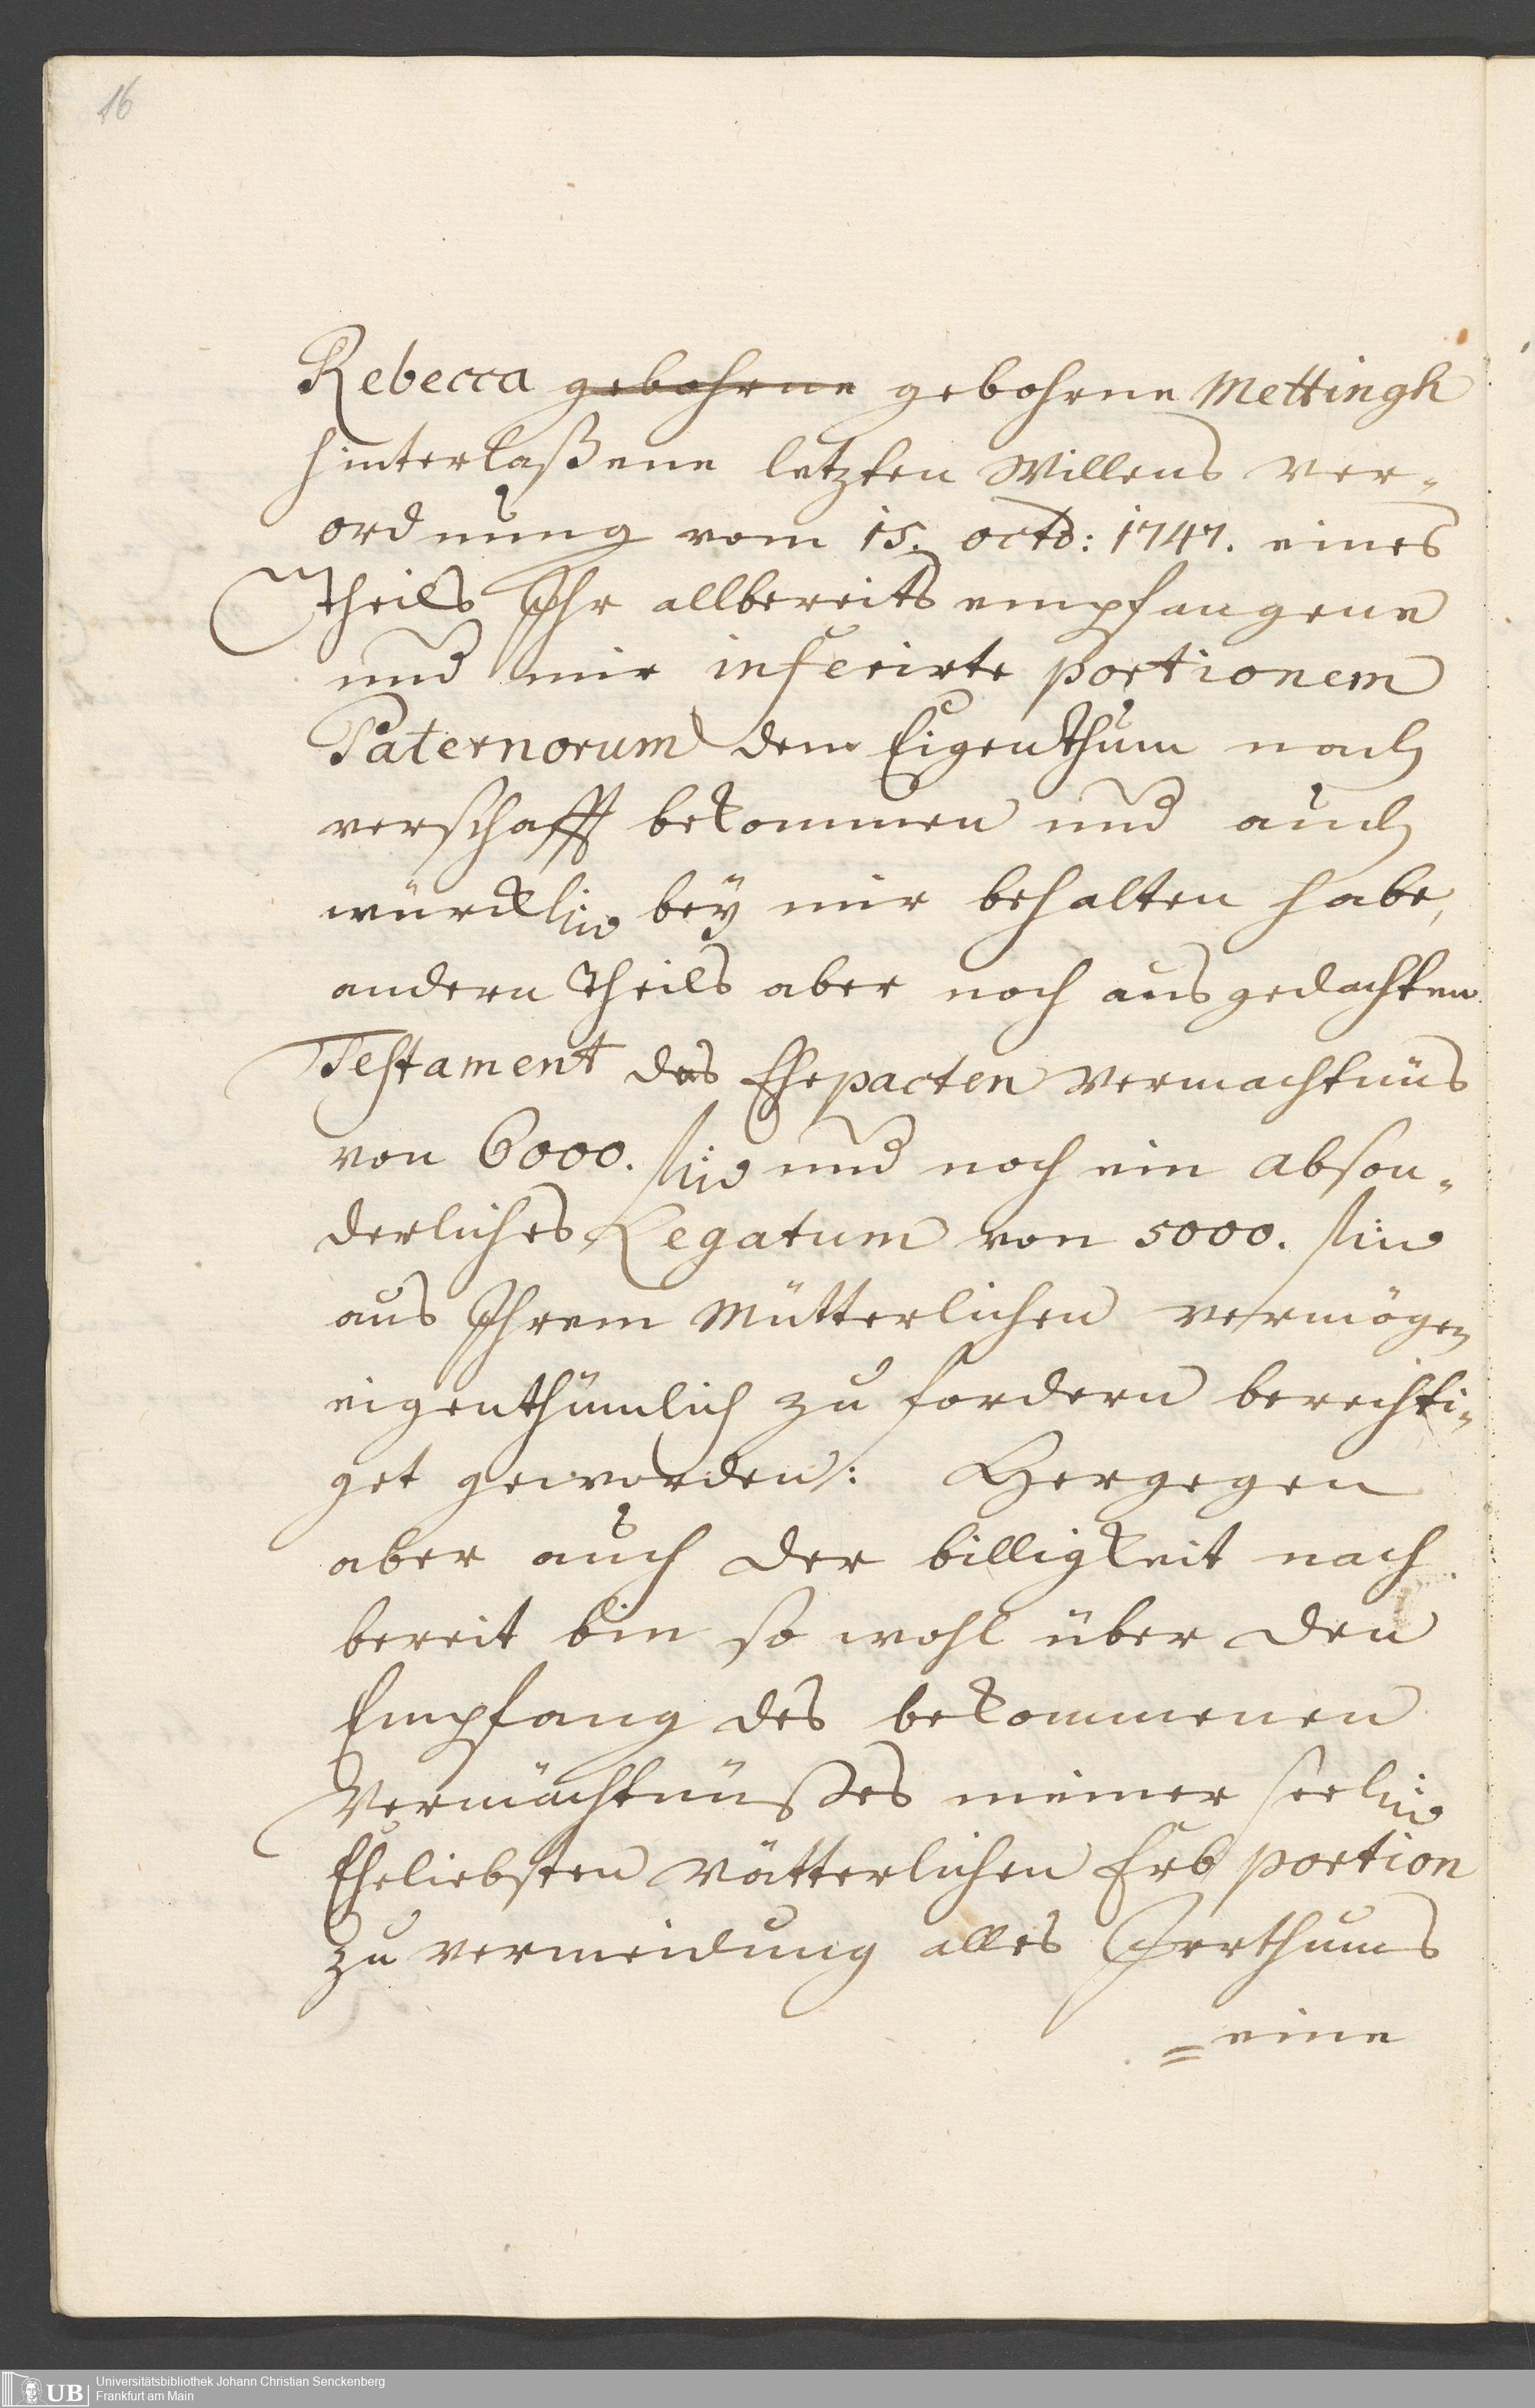 16
Rebecca gebohrne gebohrne Mettingh
hinterlaßene letzten Willens ver-
ordnung vom 15. octb: 1747. eines
Theils Ihr allbereits empfangene
und mir inferirte portionem
Paternorum dem Eigenthum nach
verschafft bekommen und auch
würcklich bey mir behalten habe,
andern Theils aber noch aus gedachten
Testament das Ehepacten vermachtnüs
von 6000. und noch ein abson-
derliches Legatum von 5000.
aus Ihrem Mütterlichen vermögen
eigenthümlich zu fordern berechti-
get geworden: Hergegen
aber auch der billigkeit nach
bereit bin so wohl über den
Empfang des bekommenen
Vermächtnüßes meiner seel:
Eheliebsten vätterlichen Erb portion
zu vermeidung alles Irrthums
=eine
UB Universitätsbibliothek Johann Christian Senckenberg
Frankfurt am Main